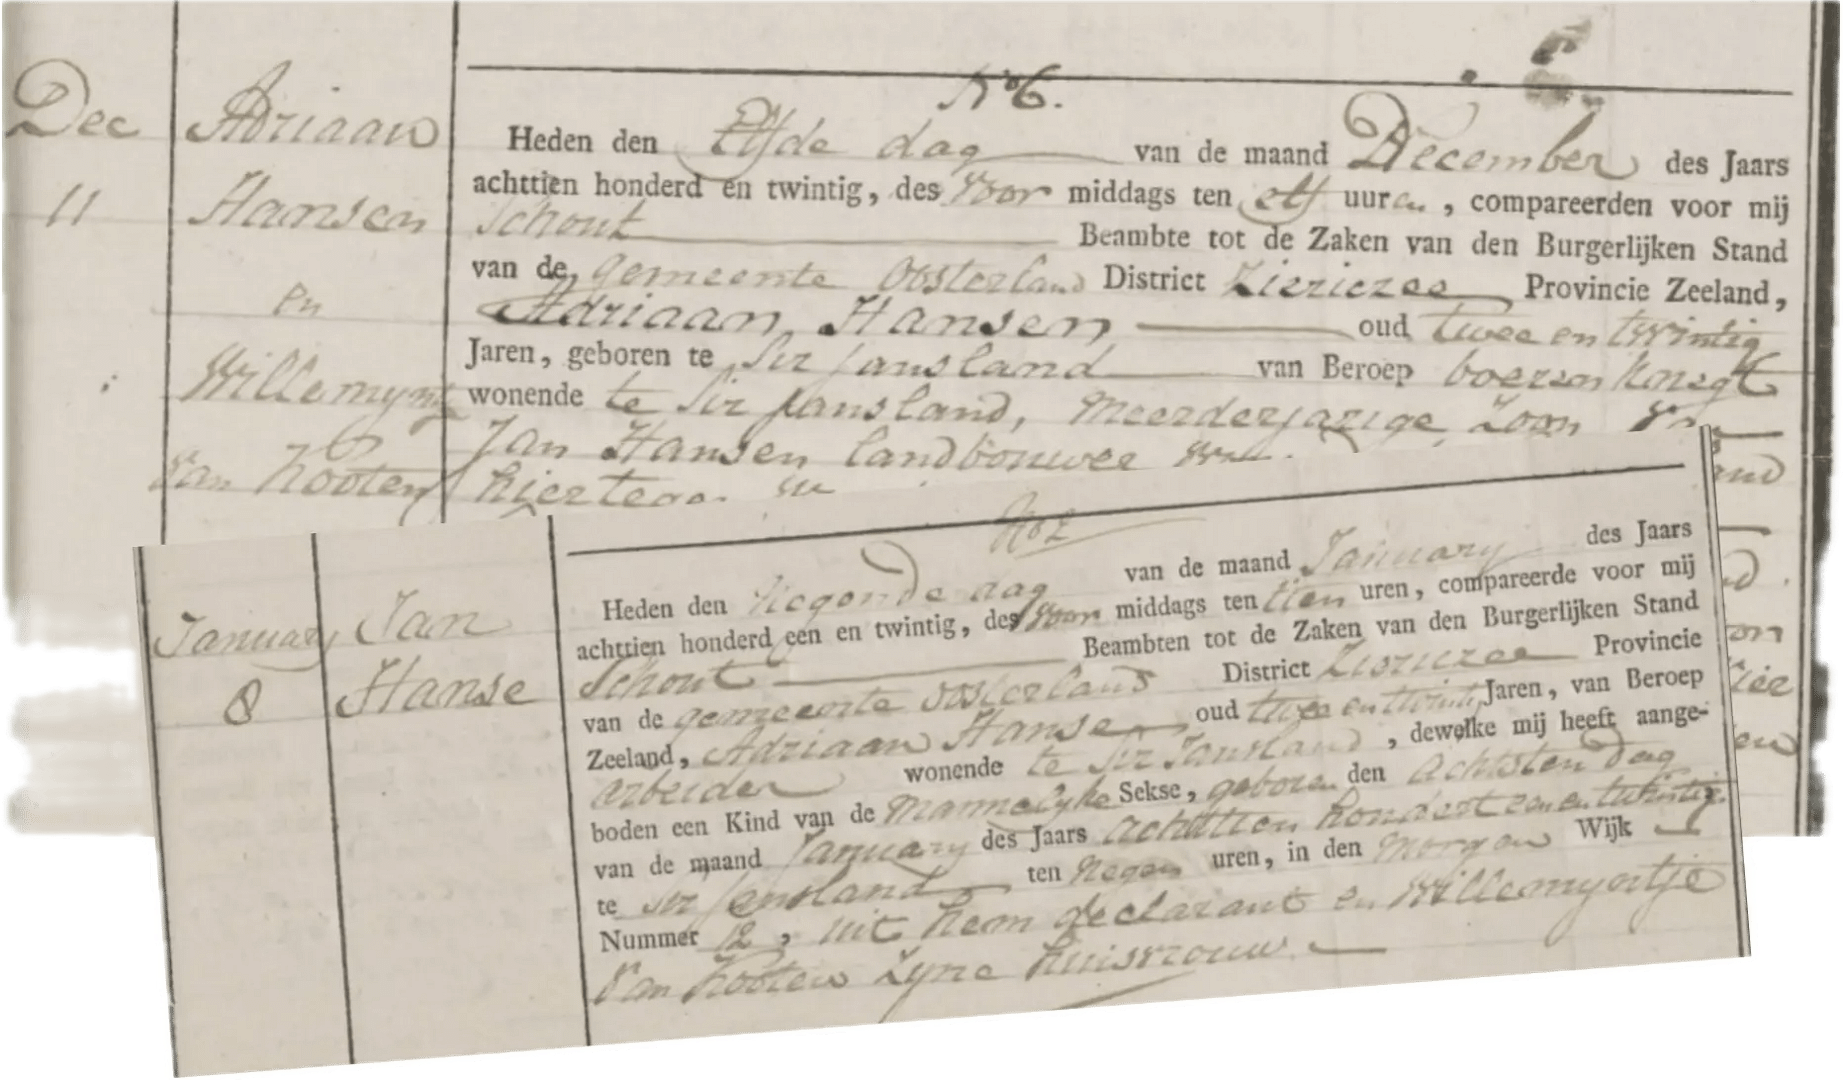 Dec
11
Adriaan
Hansen
en
Willemyntje
van Kooten
No 6.
Heden den Elfde dag van de maand December des Jaars
achttien honderd en twintig, des voor middags ten elf uuren, compareerden voor mij
Schout Beambte tot de Zaken van den Burgerlijken Stand
van de gemeente Oosterland District Zieriezee Provincie Zeeland,
Adriaan Hansen oud twee en twintig
Jaren, geboren te Sir Jansland van Beroep boeren knegt
wonende te Sir Jansland, meerderjarige Zoon van
Jan Hansen landbouwer
hiertegen
January
8
Jan
Hanse
No 2
Heden den Negende dag van de maand January des Jaars
achttien honderd een en twintig, des voor middags ten tien uren, compareerde voor mij
Schout Beambten tot de Zaken van den Burgerlijken Stand
van de gemeente Oosterland District Zieriezee Provincie
Zeeland, Adriaan Hanse oud twee en twintig Jaren, van Beroep
arbeider wonende te Sir Jansland, dewelke mij heeft aange-
boden een Kind van de mannelyke Sekse, geboren den achtsten dag
van de maand January des Jaars achttien hondert een en twintig
te Sir Jansland ten Negen uren, in den morgen Wijk
Nummer 12, uit hem declarant en Willemyntje
van Kooten Zyne huisvrouw.